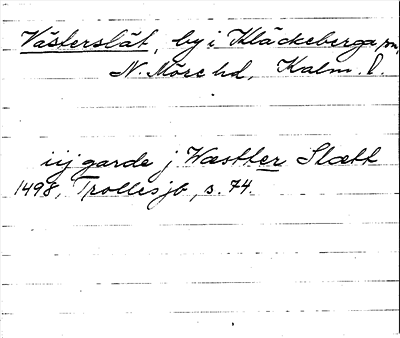 Västerslät, by i Kläckeberga sn,
N. Möre hd, Kalm. l.
iij garde j Wæstter Slætt
1498, Trollesjb, s. 74.